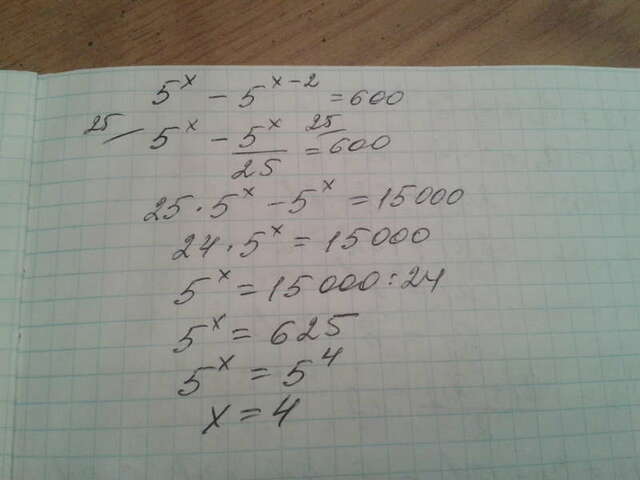 5^x - 5^(x-2) = 600
25/ 5^x - 5^x/25 = 25/ 600
25 · 5^x - 5^x = 15000
24 · 5^x = 15000
5^x = 15000 : 24
5^x = 625
5^x = 5^4
x = 4